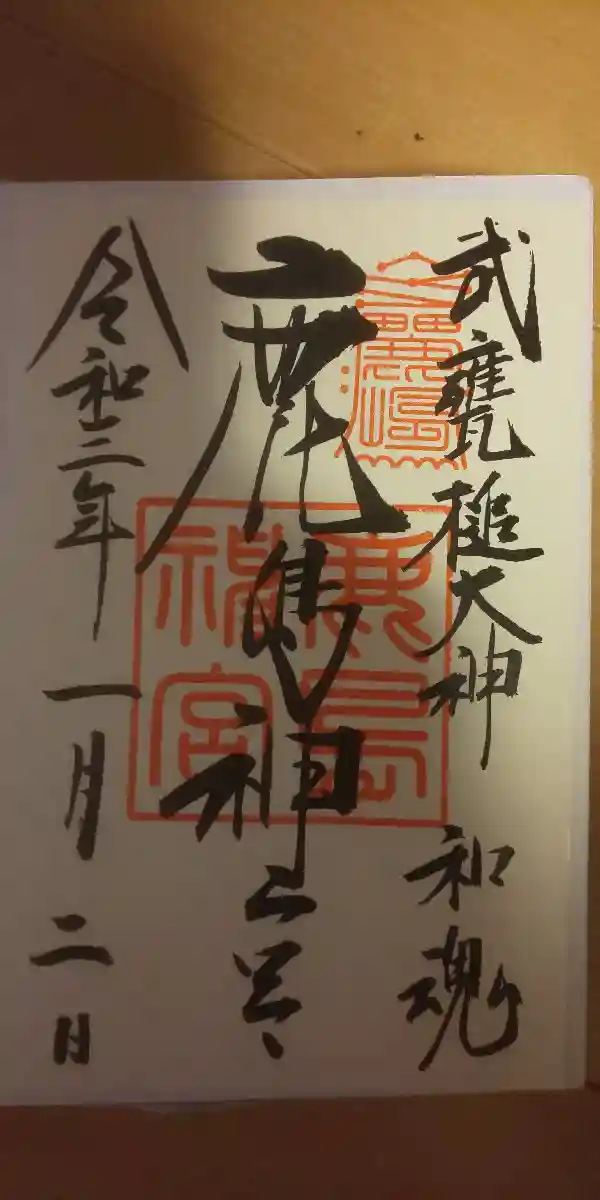 武甕槌大神 和魂
鹿嶋
鹿島神宮
鹿島神宮
令和二年 一月 二日